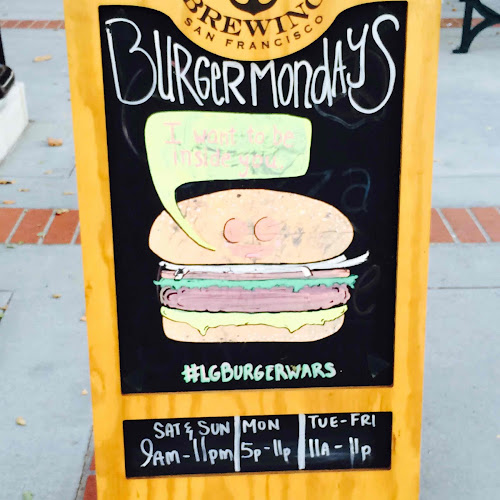 BREWING
SAN FRANCISCO
BURGER MONDAYS
I want to be
inside you.
#LGBURGERWARS
SAT & SUN MON TUE-FRI
9AM-11PM 5P-11P 11A-11P